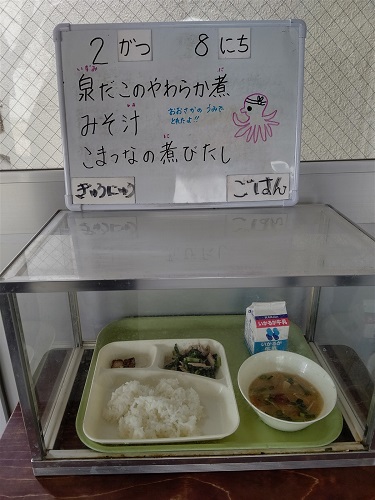 2 がつ 8 にち
いずみ に
泉だこのやわらか煮
みそ汁
おおさかのうみで
とれたよ!!
に
こまつなの煮びたし
ぎゅうにゅう ごはん
いかるが牛乳
いかるが